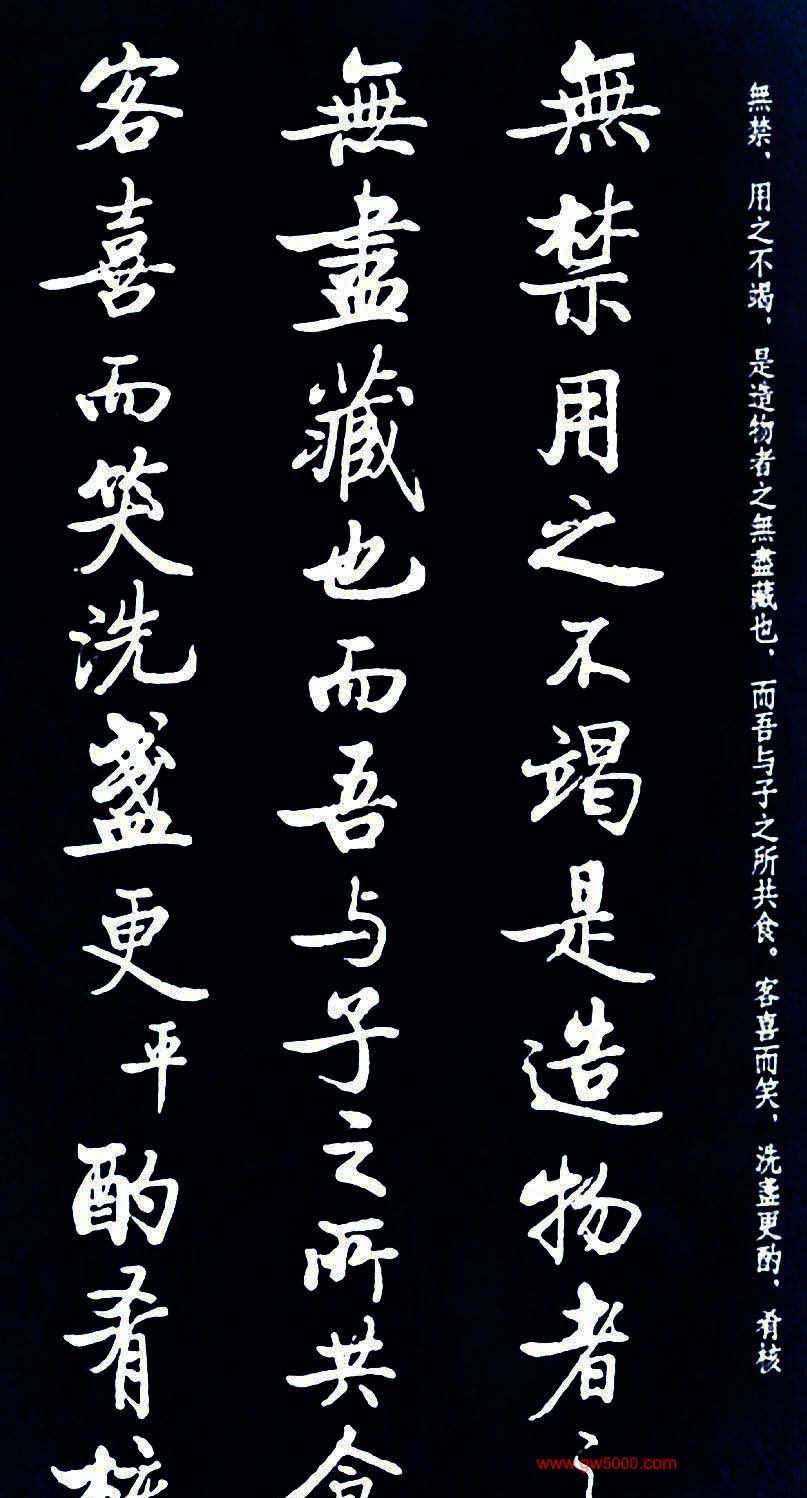 無禁，用之不竭，是造物者之無盡藏也，而吾与子之所共食。客喜而笑，洗盞更酌，肴核
無禁用之不竭是造物者之
無盡藏也而吾与子之所共食
客喜而笑洗盞更平酌肴核
www.gw5000.com